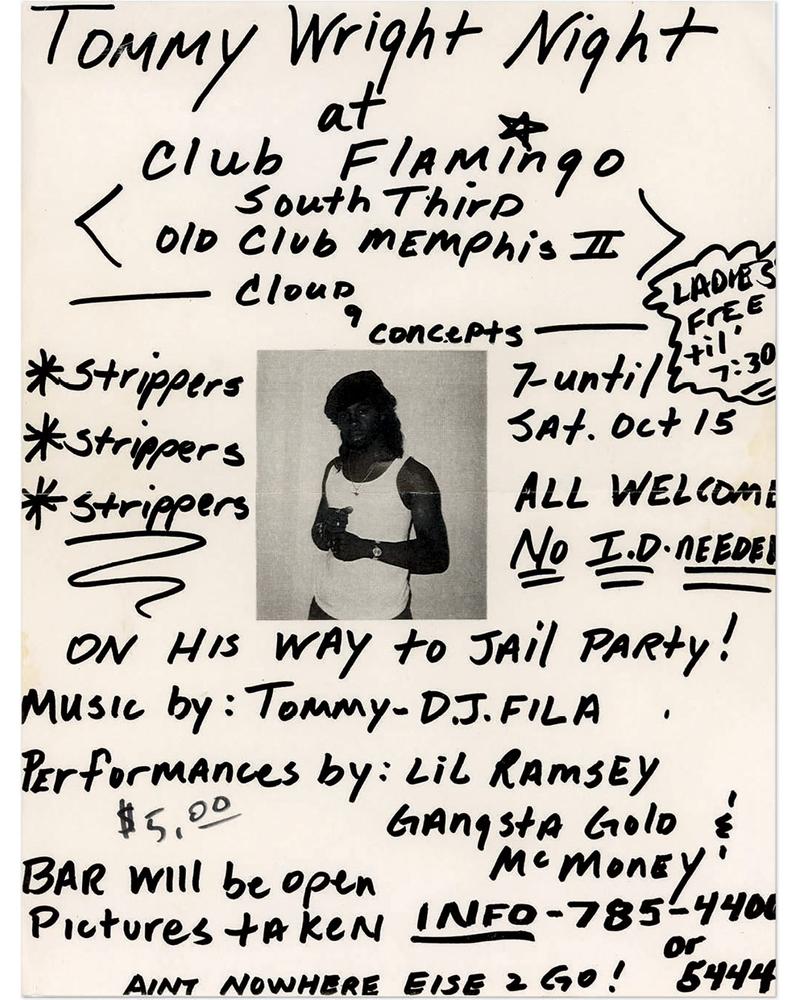 Tommy Wright Night
at
Club Flamingo
South Third
Old Club Memphis II
Cloud 9 concepts
LADIES
FREE
til'
7:30
*Strippers
*Strippers
*Strippers
7-until
SAt. Oct 15
ALL WELCOME
No I.D. NEEDED
ON HIS WAY to JAil PARty!
Music by: Tommy-D.J. FILA
Performances by: LiL RAMSEY
$5.00
GAngstA Gold &
Mc Money
BAR will be open
Pictures tAKeN
INFO-785-4400
or
5444
AINT NOWHERE ElSE 2 GO!